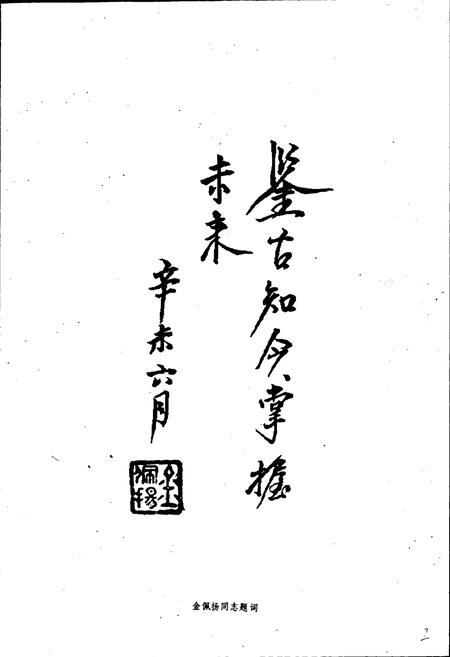 鉴古知今、掌握
未来
辛未六月
金佩扬
金佩扬同志题词
2